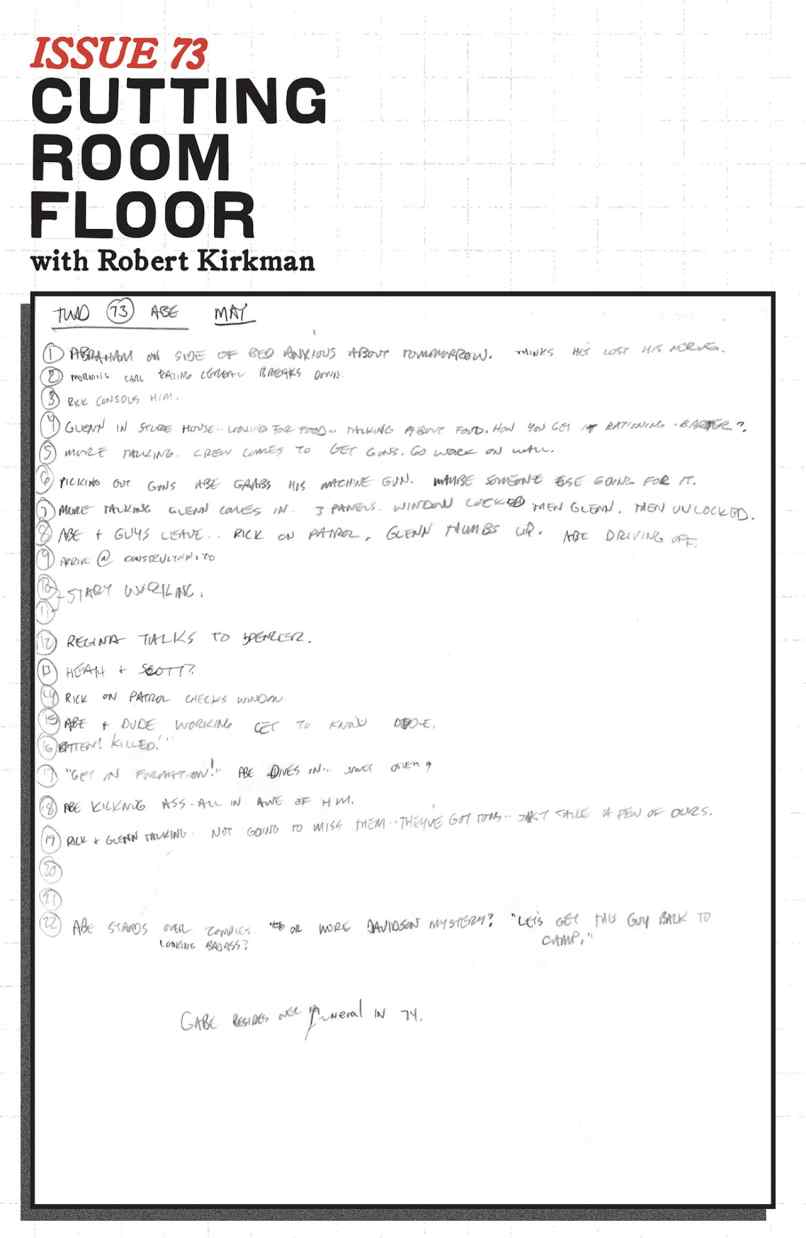 ISSUE 73
CUTTING
ROOM
FLOOR
with Robert Kirkman
TWD 73 ABE MAY
1 ABRAHAM ON SIDE OF BED ANXIOUS ABOUT TOMORROW. THINKS HE'S LOST HIS NERVES.
2 MORNING CARL EATING CEREAL BREAKS DOWN.
3 RICK CONSOLES HIM.
4 GLENN IN STORE HOUSE.. LOOKING FOR FOOD.. TALKING ABOUT FOOD. HOW YOU GET IT RATIONING. BARTER?
5 MORE TALKING. CREW COMES TO GET GUNS. GO WORK ON WALL.
6 PICKING OUT GUNS ABE GRABS HIS MACHINE GUN. MAYBE SOMEONE ELSE GOING FOR IT.
7 MORE TALKING GLENN COMES IN. 3 PANELS. WINDOW LOCKED THEN GLENN, THEN UNLOCKED.
8 ABE + GUYS LEAVE.. RICK ON PATROL, GLENN THUMBS UP. ABE DRIVING OFF.
9 ARRIVE @ CONSTRUCTION
10
11 START WORKING.
12 REGINA TALKS TO SPENCER.
13 HEATH + SCOTT?
14 RICK ON PATROL CHECKS WINDOW
15 ABE + DUDE WORKING GET TO KNOW DUDE.
16 BITTEN! KILLED!
17 "GET IN FORMATION!" ABE DIVES IN.. SAVES
18 ABE KICKING ASS. ALL IN AWE OF HIM.
19 RICK + GLENN TALKING. NOT GOING TO MISS THEM.. THEY'VE GOT TONS.. JUST TAKE A FEW OF OURS.
20
21
22 ABE STANDS OVER ZOMBIES OR MORE DAVIDSON MYSTERY? "LET'S GET THIS GUY BACK TO
LOOKING BADASS? CAMP."
GABE RESIDES OVER funeral IN 74.